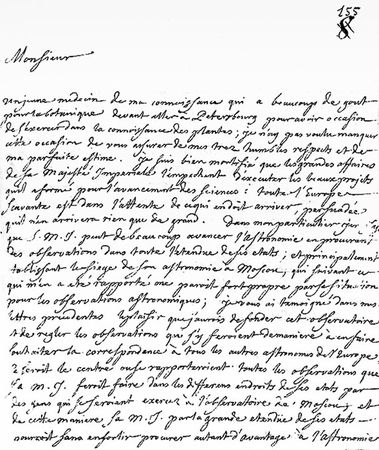 155
8
Monsieur
un jeune medecin de ma connoissance qui a beaucoup de gout
pour la botanique devant aller a Petersbourg pour avoir occasion
de s'exercer dans la connoissance des plantes; je n'ay pas voulu manquer
cette occasion de vous assurer de mes tres humbles respects et de
ma parfaite estime. je suis bien mortifié que les grandes affaires
de sa Majesté Imperiale l'empechent d'executer les beaux projets
qu'il a formé pour l'avancement des Sciences: toute l'Europe
scavante est dans l'attente de ce qui indoit arriver, persuadée
qu'il n'en arrivera rien que de grand. Dans mon particulier je
que S. M. I. peut de beaucoup avancer l'Astronomie en procurant
des observations dans toute l'étendue de ses etats; et principalement
établissant le siege de son astronomie à Moscou, qui suivant ce
qui m'en a eté rapporté me paroit fort propre par sa situation
pour les observations astronomiques; je vous ai temoigné dans mes
lettres precedentes le plaisir que j'aurois de fonder cet observatoire
et de regler les observations qui s'y feroient de maniere à en faire
la correspondence à tous les autres astronomes de l'Europe
Il seroit le centre ou se rapporteroient toutes les observations que
sa M. I. feroit faire dans les differens endroits de ses etats par
des gens qui se seroient exercez à l'observatoire de Moscou; et
de cette maniere sa M. I. par la grande etendue de ses etats
pourroit sans en sortir procurer autant d'avantage à l'Astronomie